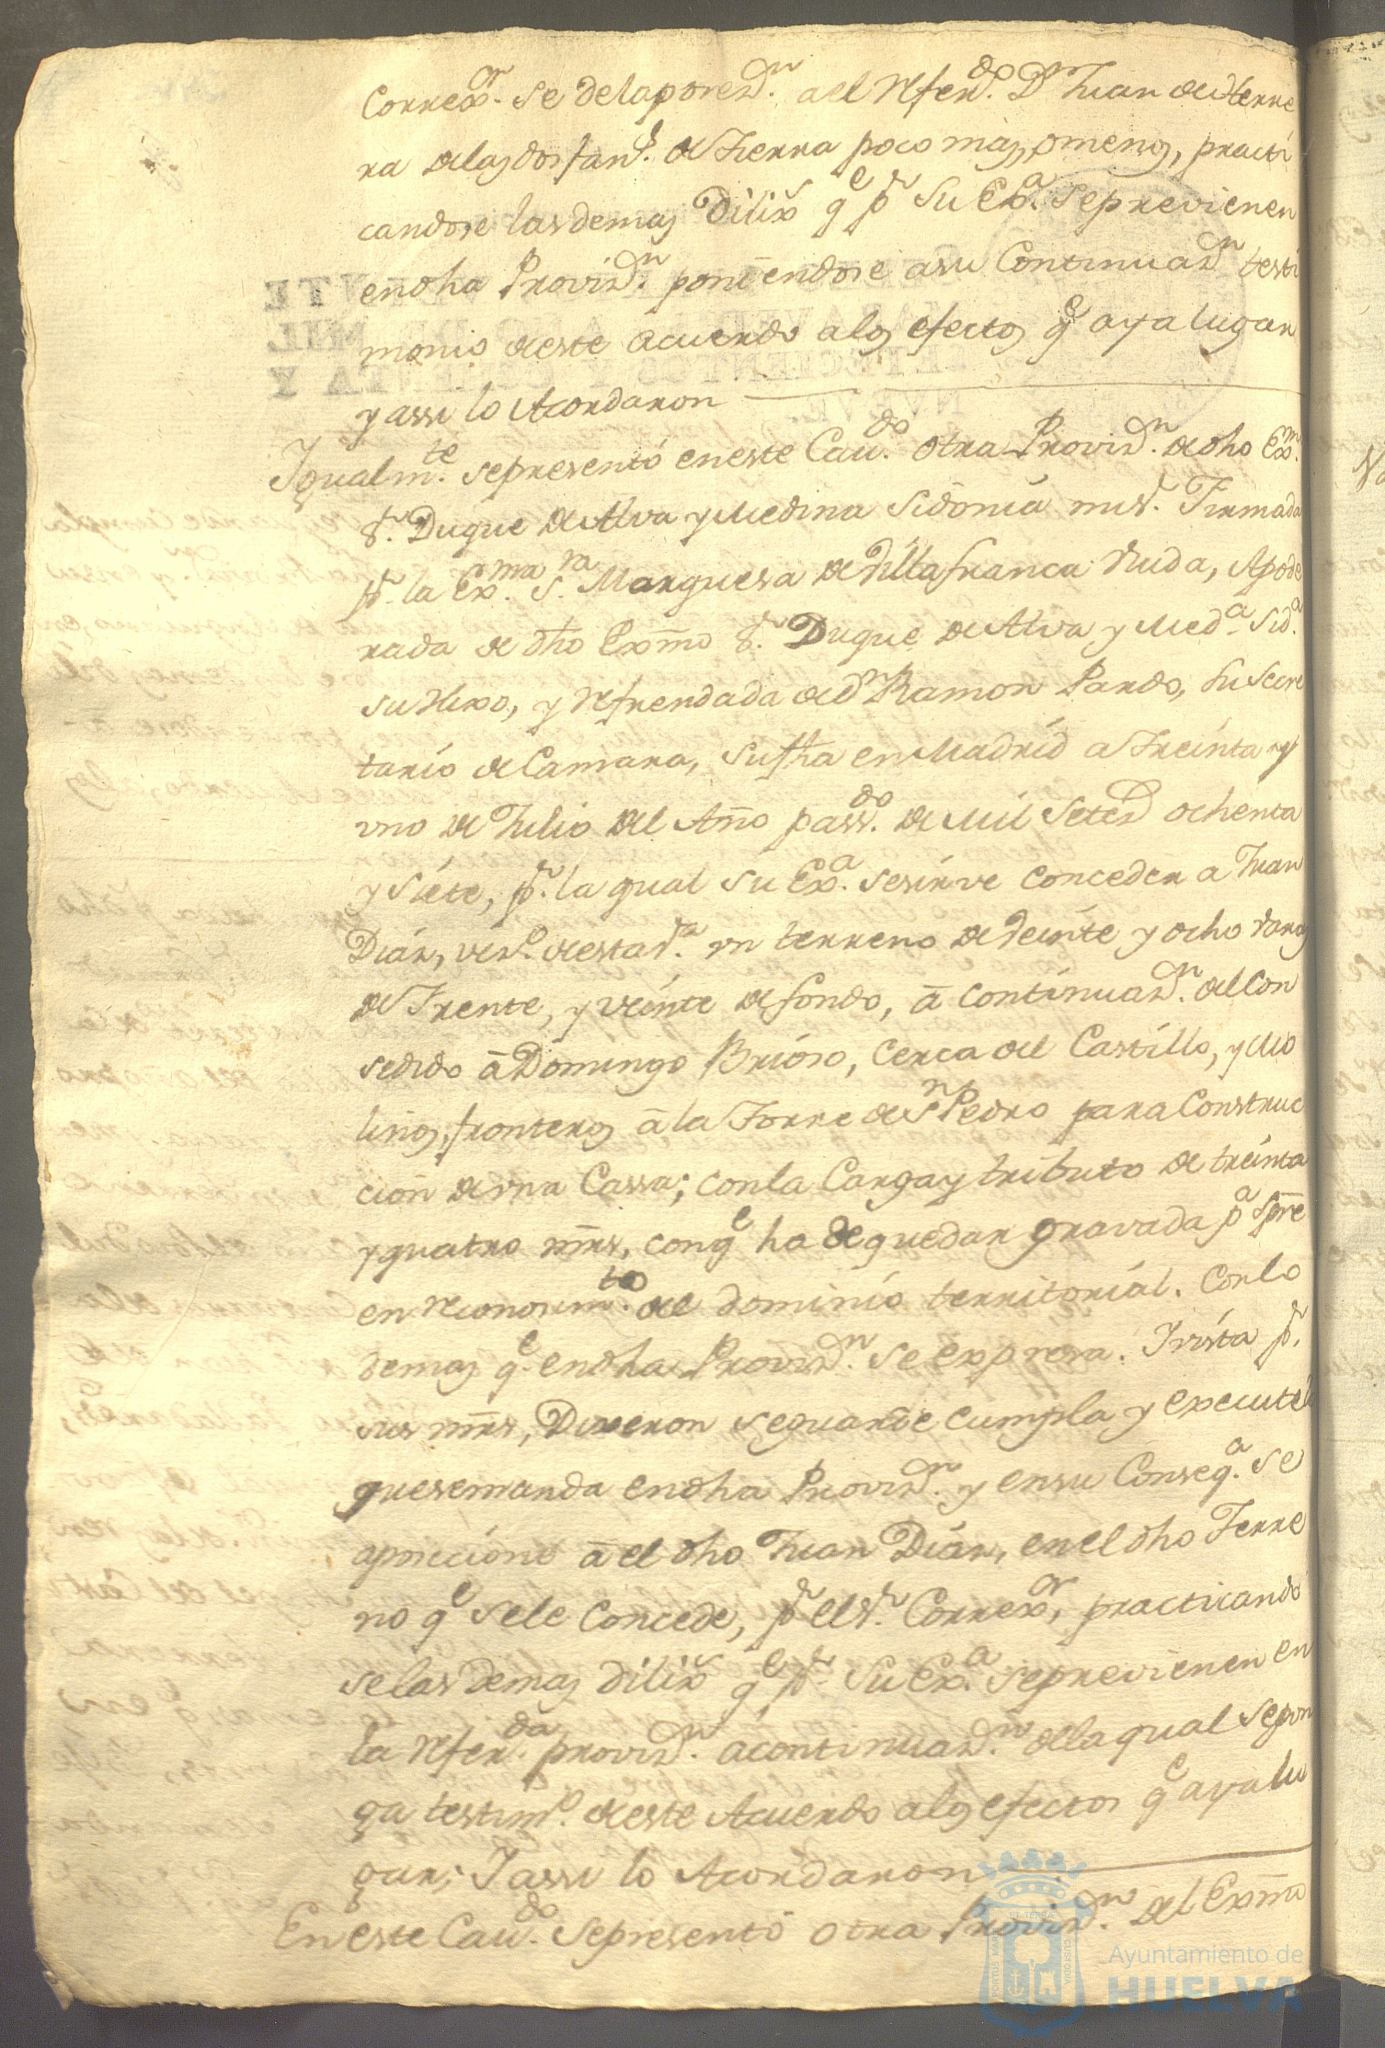 Correxor. se de la poses.n a el refer.do D.n Juan de Herre
ra de las dos fan.s de tierra poco mas, omenos, practi
candose las demas Dilix.s q.e p.r Su Ex.a se previenen
en dha Provid.n poniendose a su Continuaz.n testi
monio de este acuerdo a los efectos q.e aya lugar
y assi lo Acordaron
Igualm.te se presentó en este Cav.do otra Provid.n de dho Ex.mo
S.r Duque de Alva y Medina Sidonia mi s.r Firmada
p.r la Ex.ma S.ra Marquesa de Villafranca Viuda, Apode
rada de dho Exmo S.r Duque de Alva y Med.a Sid.a
su Hixo, y refrendada de d.n Ramon Pardo, su Secre
tario de Camara, su fha en Madrid a treinta y
uno de Julio del Año pass.do de Mil Setez.s ochenta
y siete, p.r la qual su Ex.a se sirve conceder a Juan
Diaz, vez.o de esta v.a un terreno de veinte y ocho varas
de Frente, y veinte de fondo, á continuaz.n del con
sedido á Domingo Brioso, cerca del Castillo, y Mo
linos, fronteros á la Torre de S.n Pedro para Construc
cion de una Cassa; con la Carga y tributo de treinta
y quatro mrs, con q.e ha de quedar gravada p.a spre
en reconosim.to del dominio territorial. Con lo
demas q.e en dha Provid.n se expresa. I vista p.r
sus mrds, Dixeron se guarde cumpla y execute lo
que se manda en dha Provid.n y en su Conseq.a se
aposecione á el dho Juan Diaz, en el dho Terre
no q.e se le Concede, p.r el s.r Correx.or, practicando
se las demas dilix.s q.e p.r Su Ex.a se previenen en
la refer.da provid.n á continuaz.n de la qual se pon
ga testim.o de este Acuerdo a los efectos q.e aya lu
gar; I assi lo Acordaron
En este Cav.do se presentó otra Provid.n del Exmo
Ayuntamiento de
HUELVA